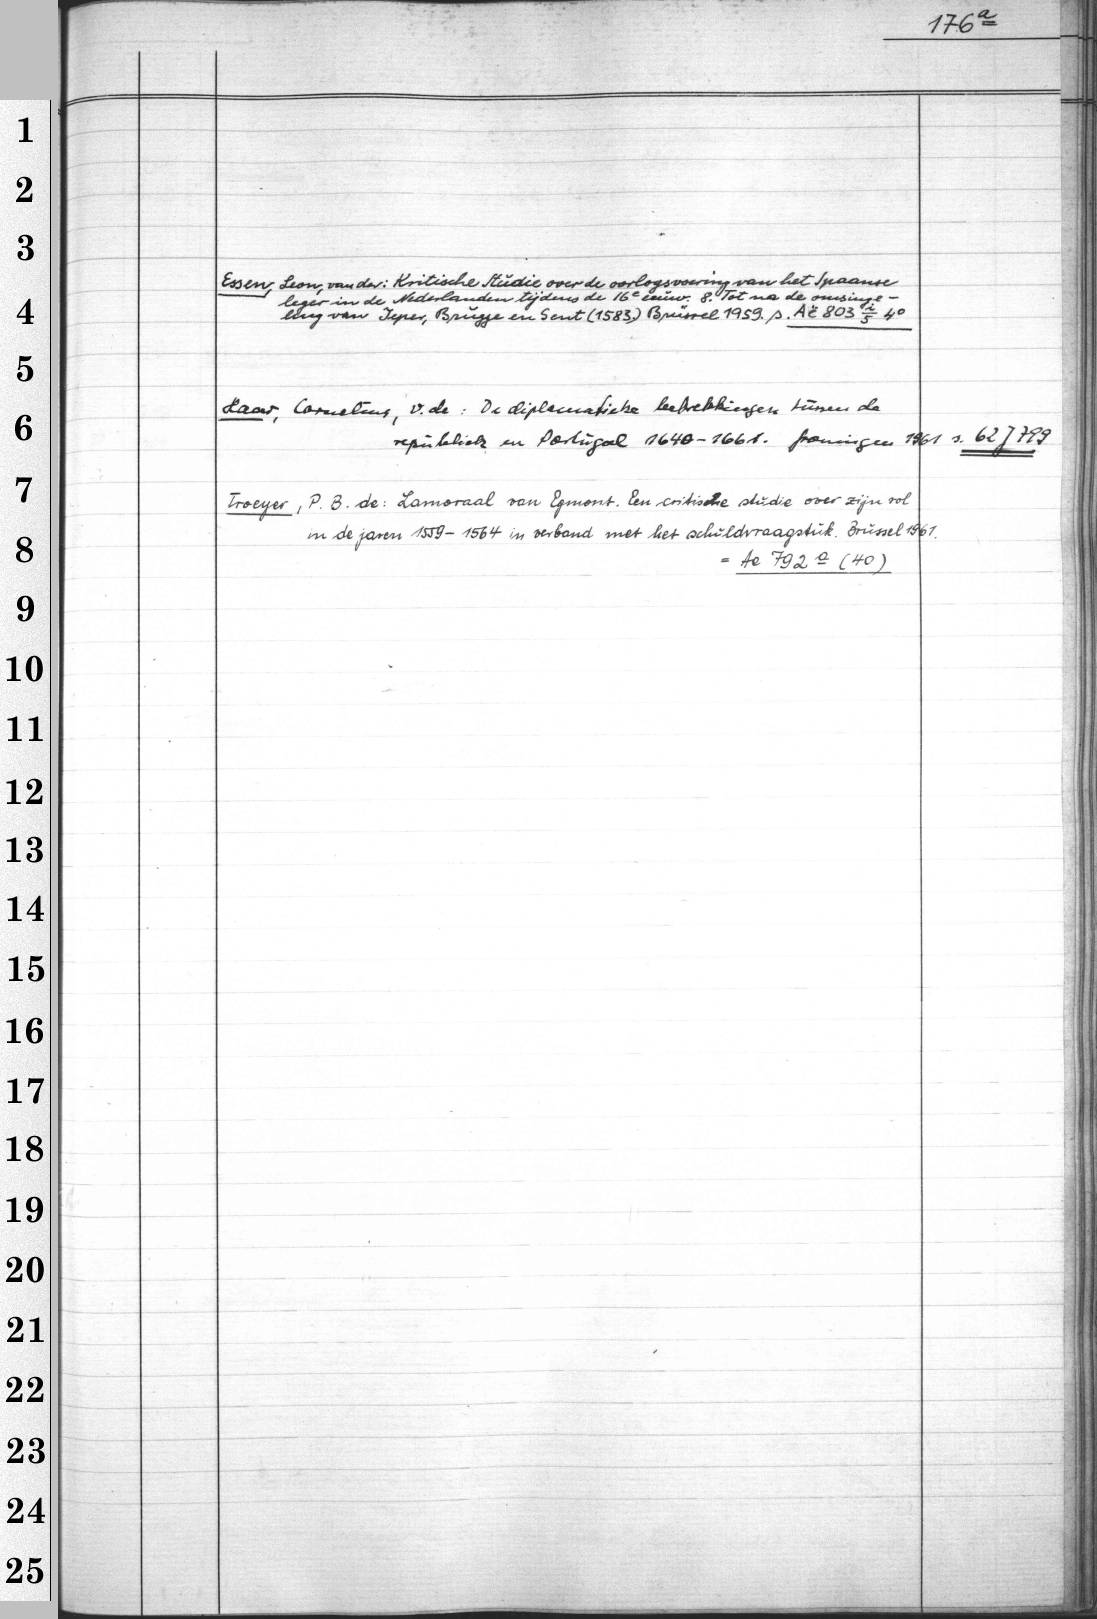 176a
1
2
3
Essen, Leon, van der: Kritische Studie over de oorlogsvoering van het Spaanse
leger in de Nederlanden tijdens de 16e eeuw. 8. Tot na de omsinge-
4
ling van Ieper, Brugge en Gent (1583) Brüssel 1959. s. 803 5 4°
5
Haar, Cornelius, v. de: De diplomatieke betrekkingen tussen de
6
republiek en Portugal 1640-1661. Groningen 1961 s. 62 J 799
7
Troeyer, P. B. de: Lamoraal van Egmont. Een critische studie over zijn rol
in de jaren 1559-1564 in verband met het schuldvraagstuk. Brüssel 1961.
8
= Ae 792 a (40)
9
10
11
12
13
14
15
16
17
18
19
20
21
22
23
24
25